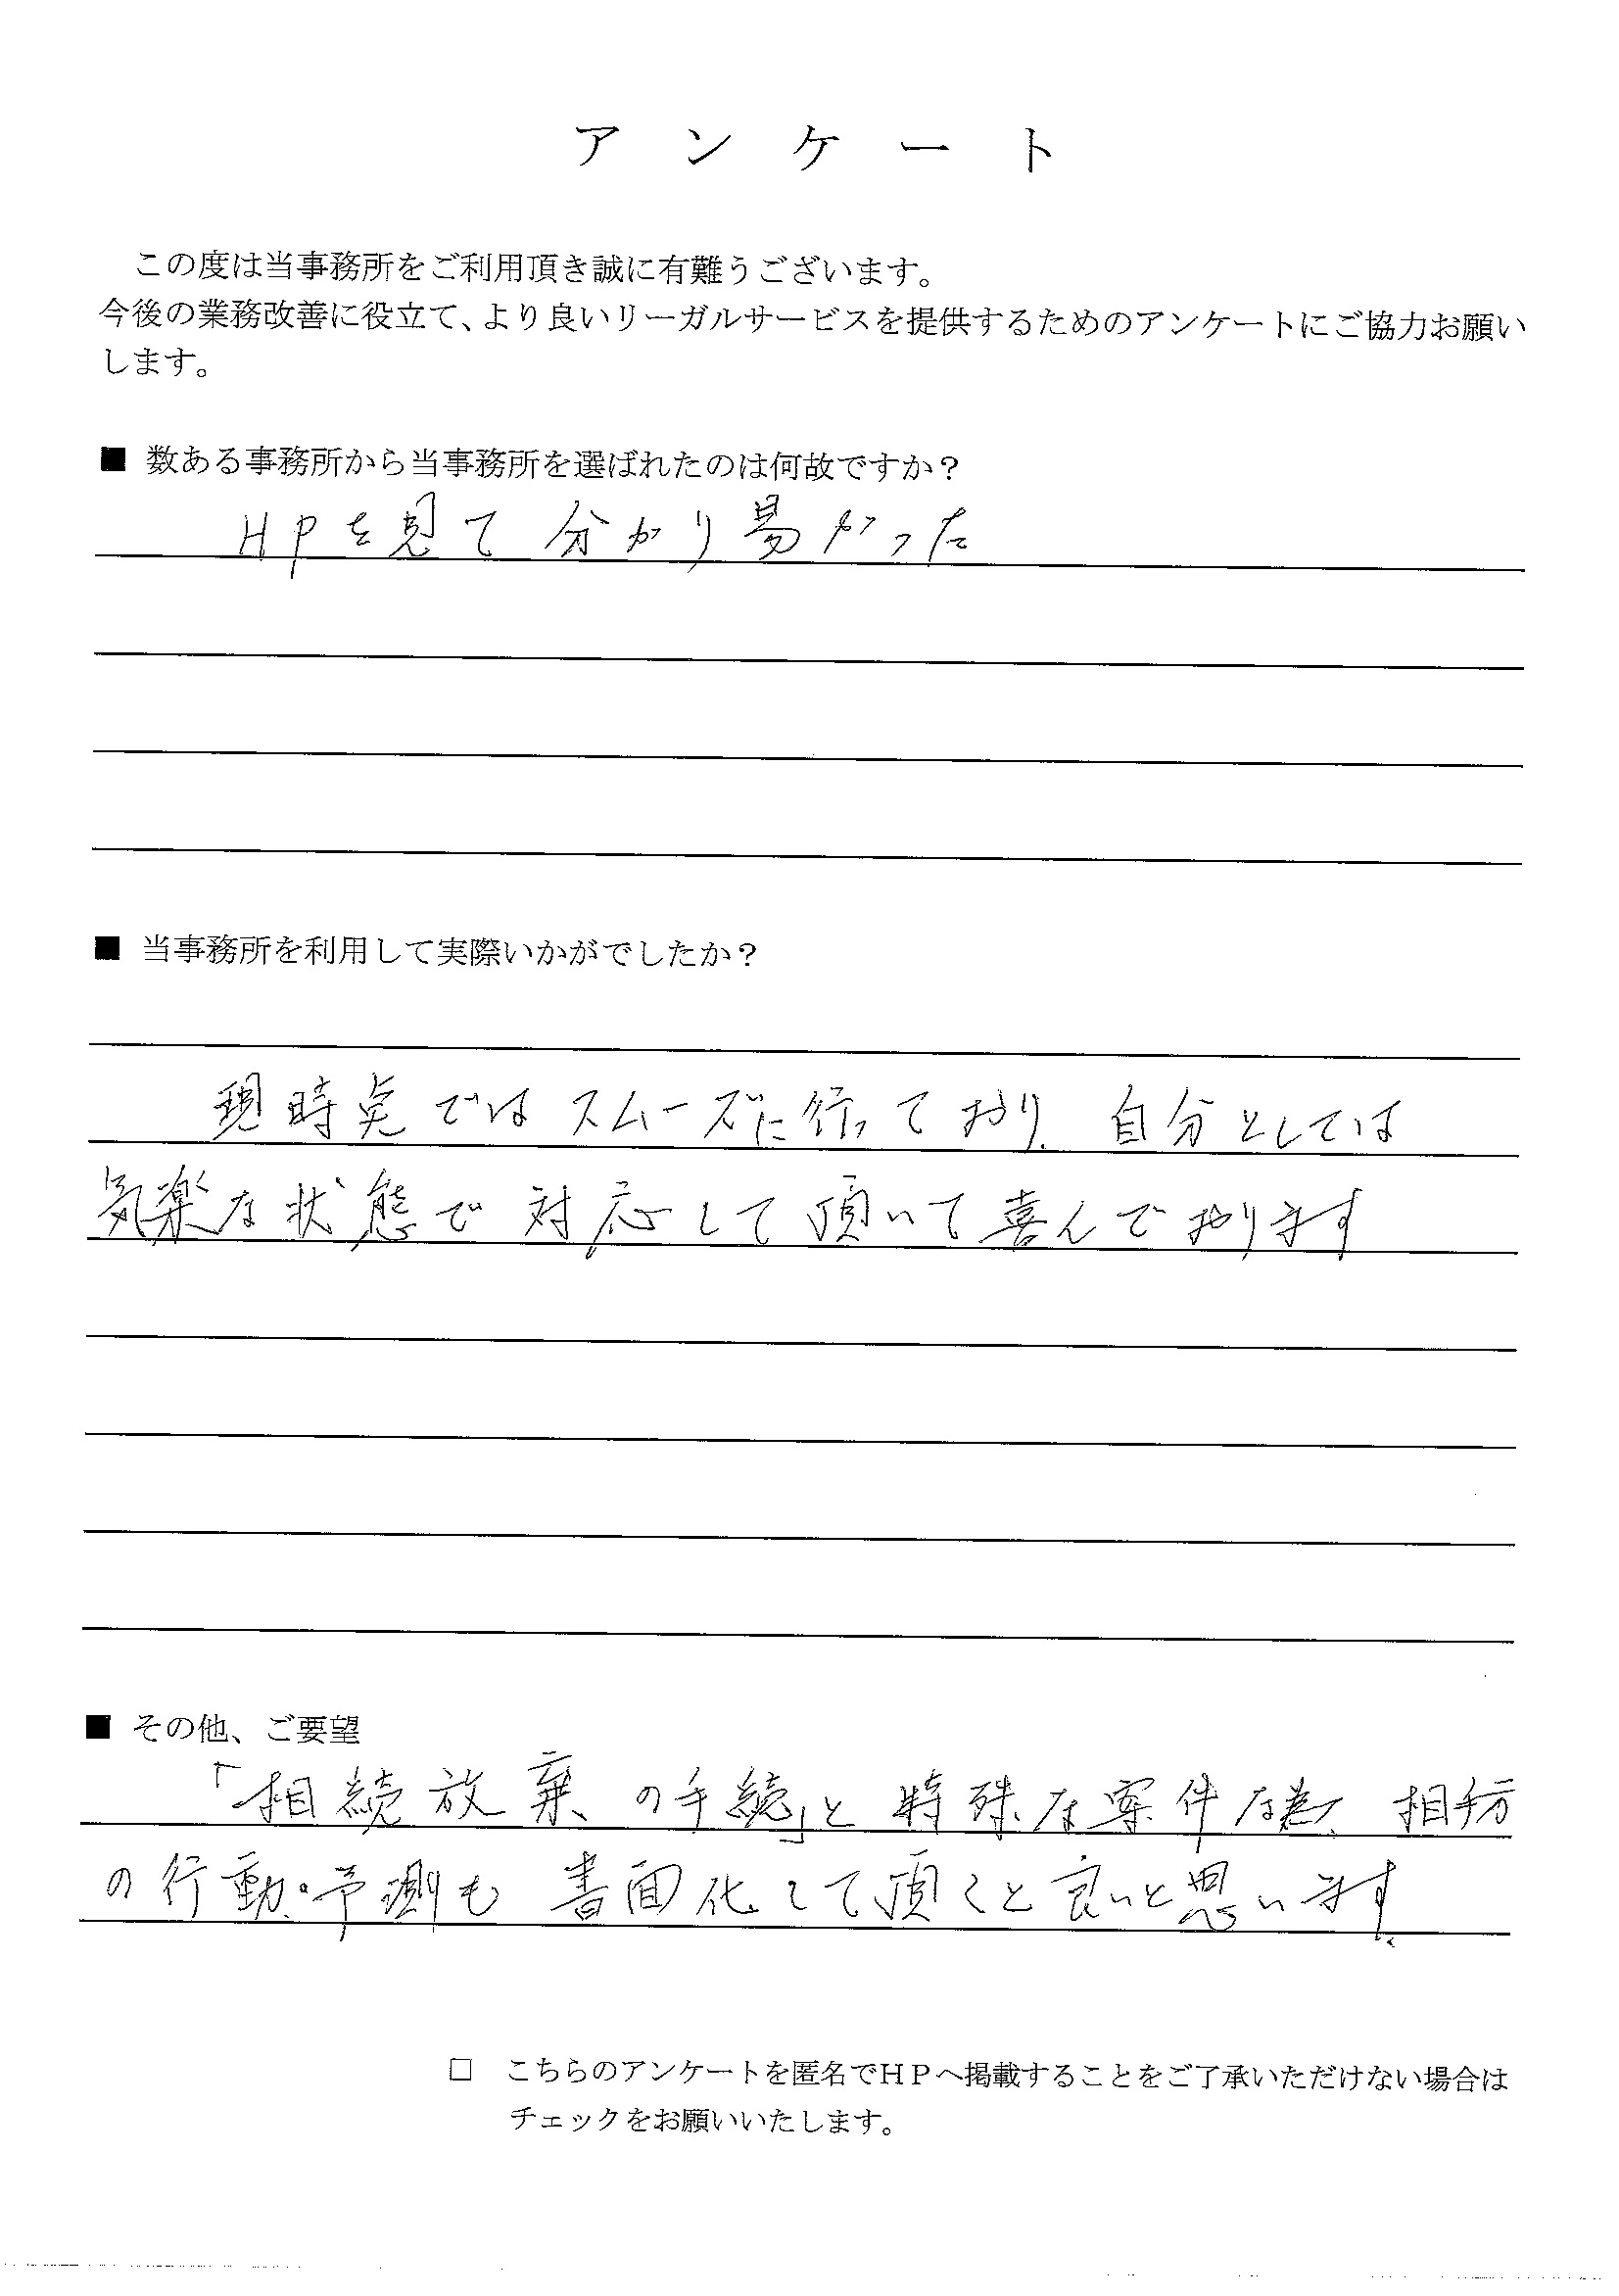 アンケート
この度は当事務所をご利用頂き誠に有難うございます。
今後の業務改善に役立て、より良いリーガルサービスを提供するためのアンケートにご協力お願い
します。
■ 数ある事務所から当事務所を選ばれたのは何故ですか？
HPを見て分かり易かった
■ 当事務所を利用して実際いかがでしたか？
現時点ではスムーズに行っており、自分としては
気楽な状態で対応して頂いて喜んでおります
■ その他、ご要望
「相続放棄、の手続」と特殊な案件な為、相手方
の行動・予測も書面化して頂くと良いと思います。
□ こちらのアンケートを匿名でＨＰへ掲載することをご了承いただけない場合は
チェックをお願いいたします。